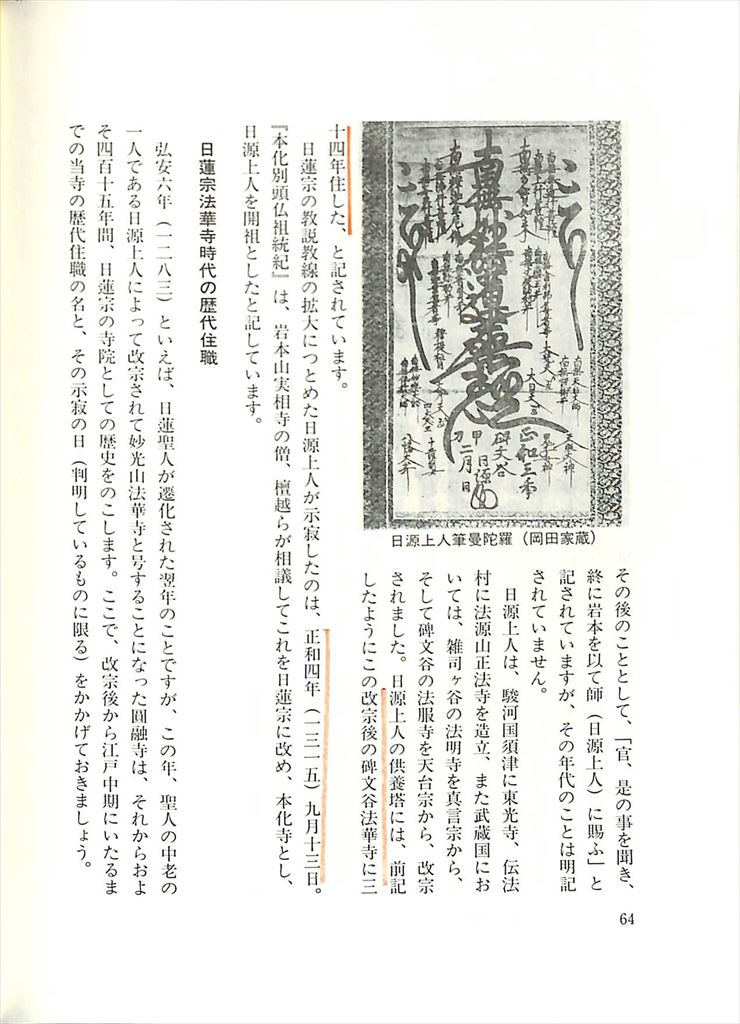 その後のこととして、「官、是の事を聞き、
終に岩本を以て師（日源上人）に賜ふ」と
記されていますが、その年代のことは明記
されていません。
日源上人は、駿河国須津に東光寺、伝法
村に法源山正法寺を造立、また武蔵国にお
いては、雑司ヶ谷の法明寺を真言宗から、
そして碑文谷の法服寺を天台宗から、改宗
されました。日源上人の供養塔には、前記
したようにこの改宗後の碑文谷法華寺に三
日源上人筆曼陀羅（岡田家蔵）
南無妙法蓮華経
正和三年
碑文谷
日源
二月日
十四年住した、と記されています。
日蓮宗の教説教線の拡大につとめた日源上人が示寂したのは、正和四年（一三一五）九月十三日。
『本化別頭仏祖統紀』は、岩本山実相寺の僧、檀越らが相議してこれを日蓮宗に改め、本化寺とし、
日源上人を開祖としたと記しています。
日蓮宗法華寺時代の歴代住職
弘安六年（一二八三）といえば、日蓮聖人が遷化された翌年のことですが、この年、聖人の中老の
一人である日源上人によって改宗されて妙光山法華寺と号することになった圓融寺は、それからおよ
そ四百十五年間、日蓮宗の寺院としての歴史をのこします。ここで、改宗後から江戸中期にいたるま
での当寺の歴代住職の名と、その示寂の日（判明しているものに限る）をかかげておきましょう。
64